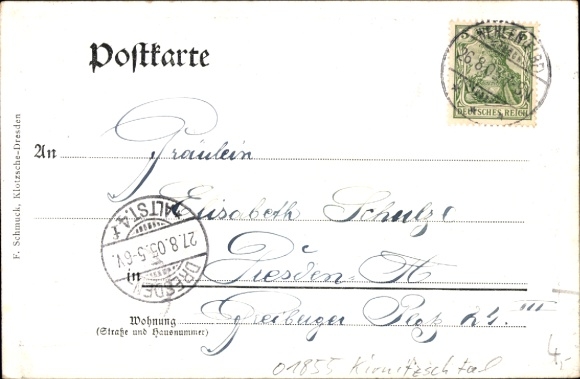 Postkarte
WEHLEN (ELBE)
26.8.05
DEUTSCHES REICH
An
Fräulein
Elisabeth Schulze
ALTST.A.
27.8.05.5-6V.
DRESDEN
in
Dresden-A
Wohnung
(Straße und Hausnummer)
Freiberger Platz 24. III
01855 Kirnitzschtal
4,-
F. Schmuck, Klotzsche-Dresden